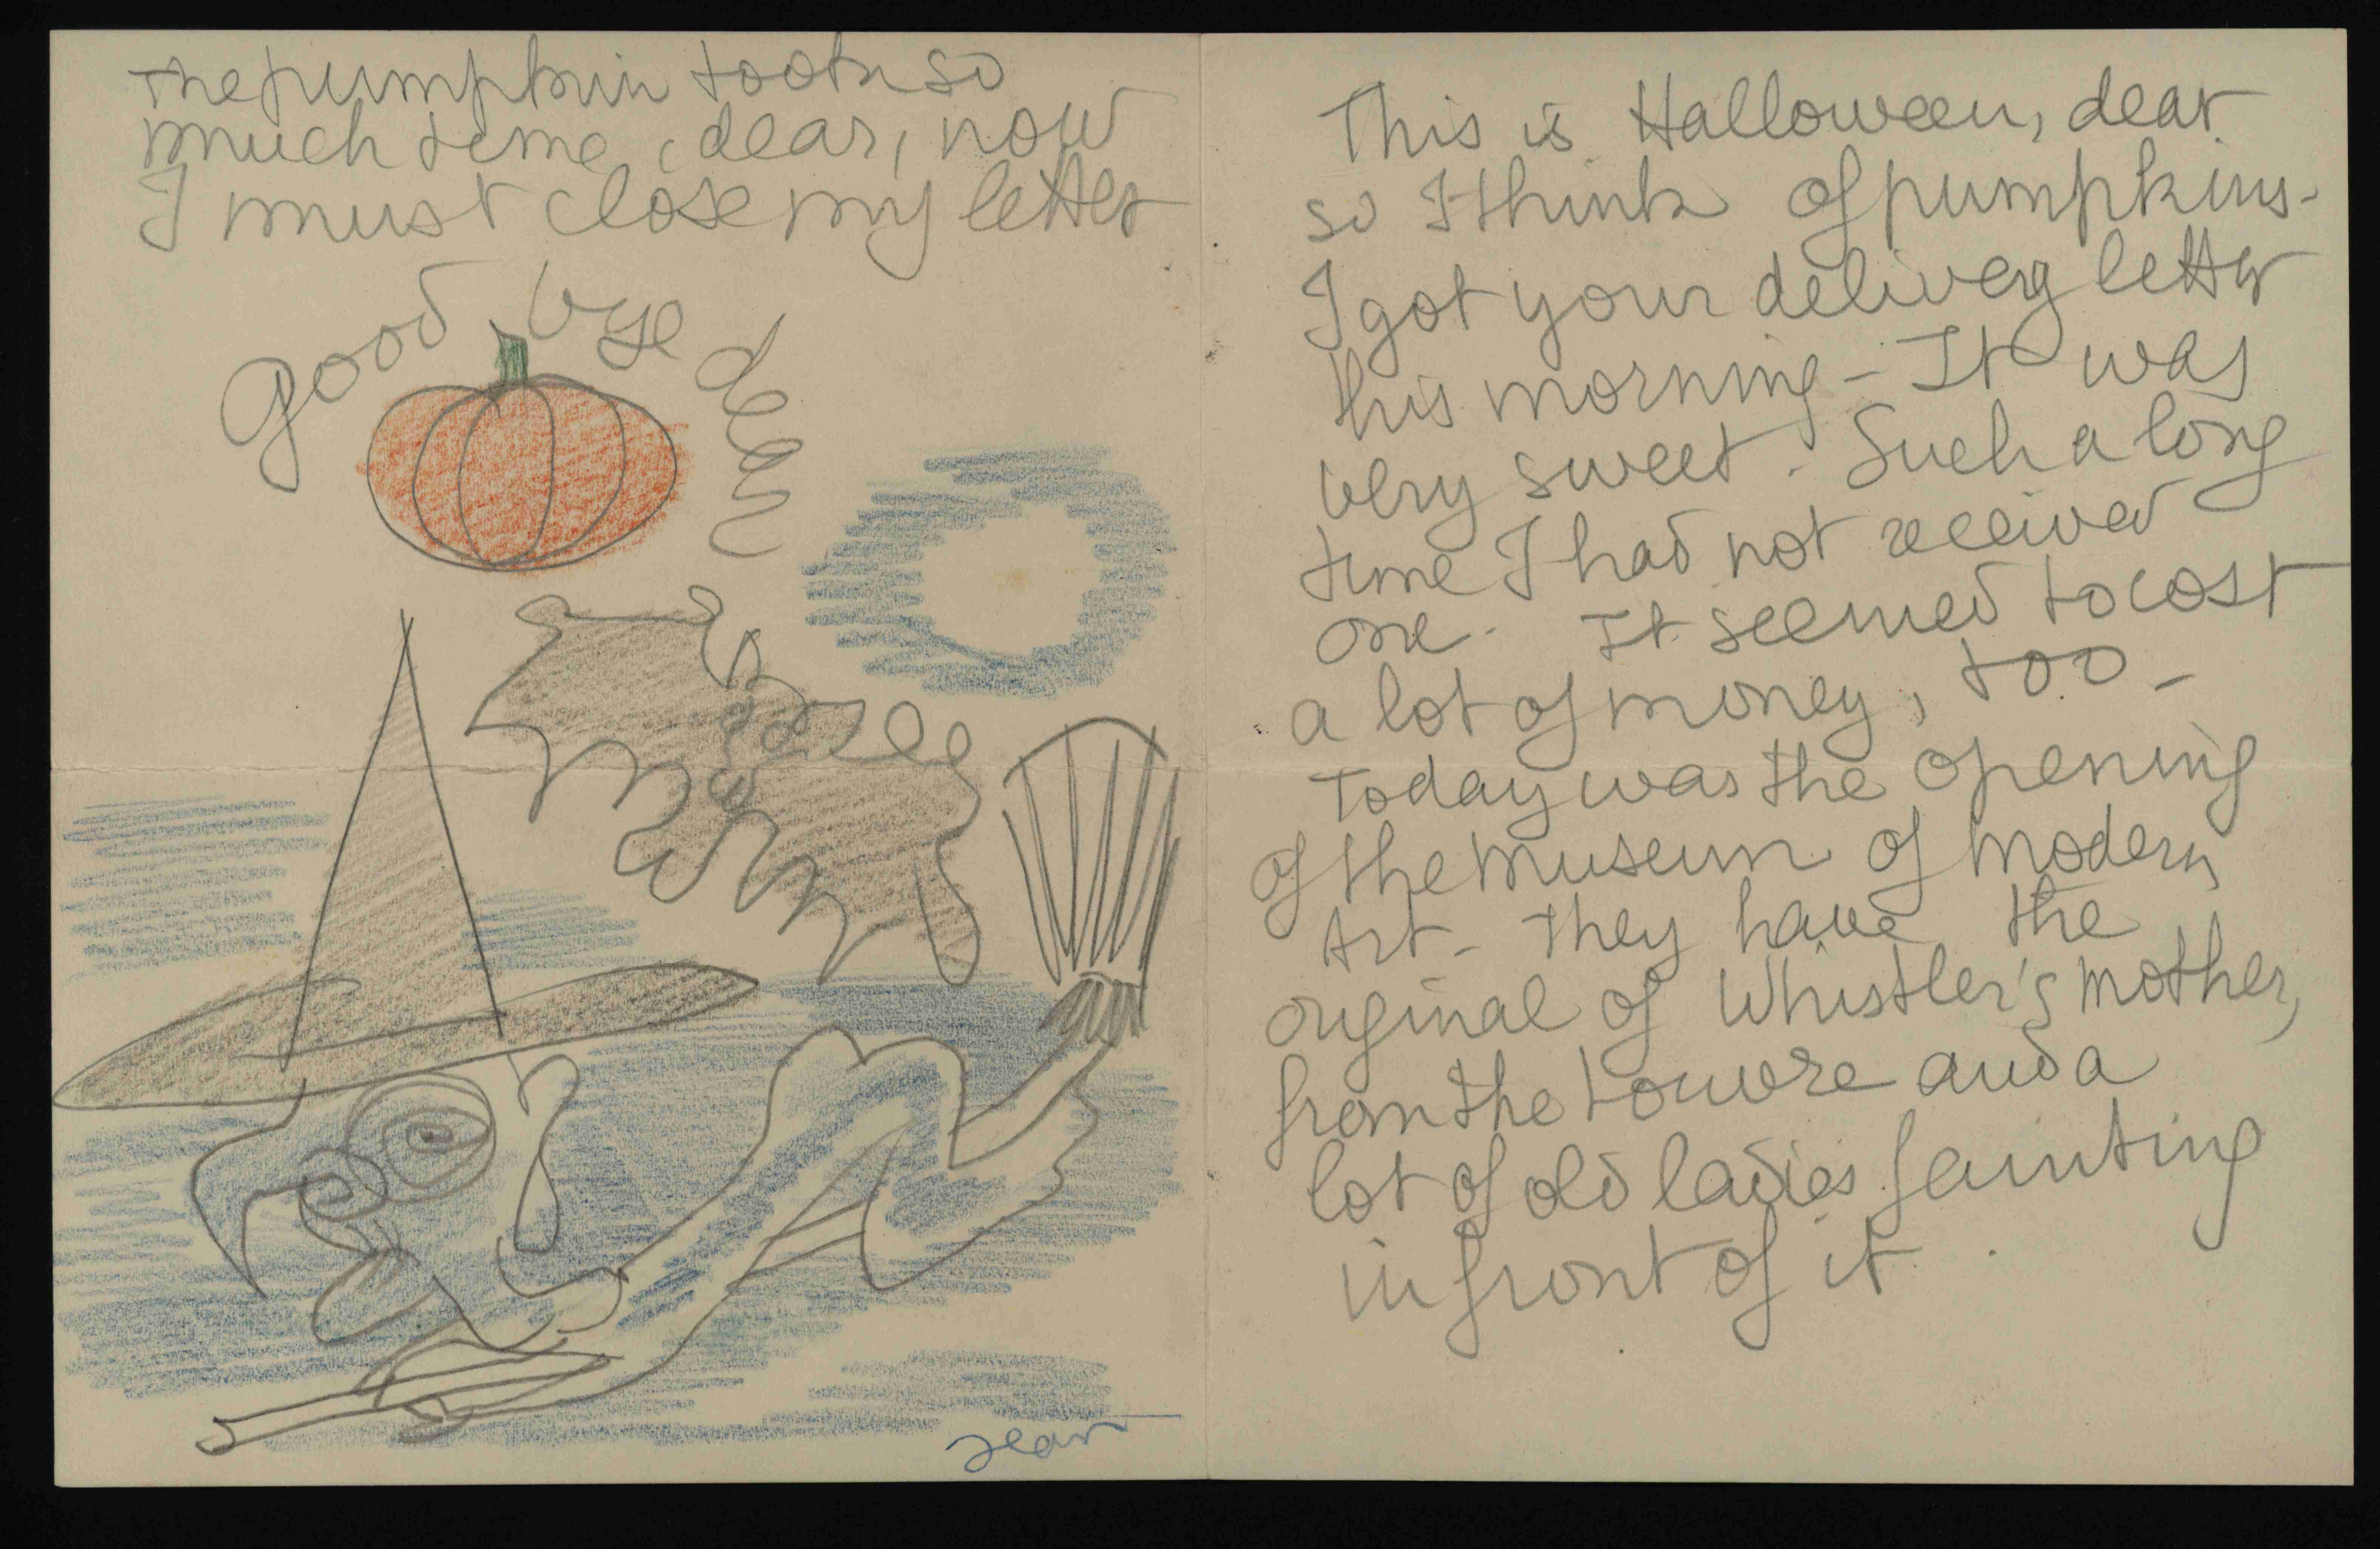 The pumpkin took so
much time, dear, now
I must close my letter
Good bye dear
Jean
This is Halloween, dear
so I think of pumpkins-
I got your delivery letter
this morning - It was
very sweet. Such a long
time I had not received
one. It seemed to cost
a lot of money, too -
Today was the opening
of the Museum of Modern
Art - They have the
original of Whistler's Mother,
from the Louvre and a
lot of old ladies fainting
in front of it.